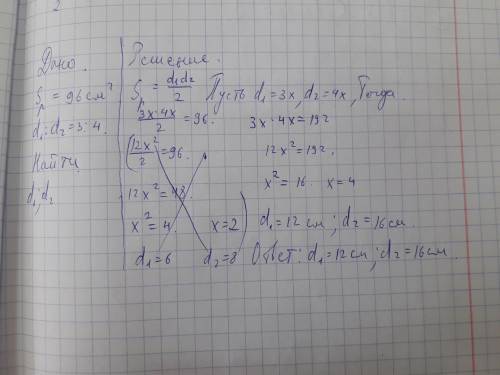 2
Дано.
Sр = 96 см²
d₁:d₂ = 3:4.
Найти
d₁; d₂
Решение.
Sр = d₁d₂/2 Пусть d₁ = 3x, d₂ = 4x, Тогда.
3x·4x/2 = 96.
(12x²/2 = 96.
12x² = 48.
x² = 4. x = 2)
d₁ = 6 d₂ = 8
3x·4x = 192
12x² = 192.
x² = 16. x = 4
d₁ = 12 см; d₂ = 16 см.
Ответ: d₁ = 12 см; d₂ = 16 см.